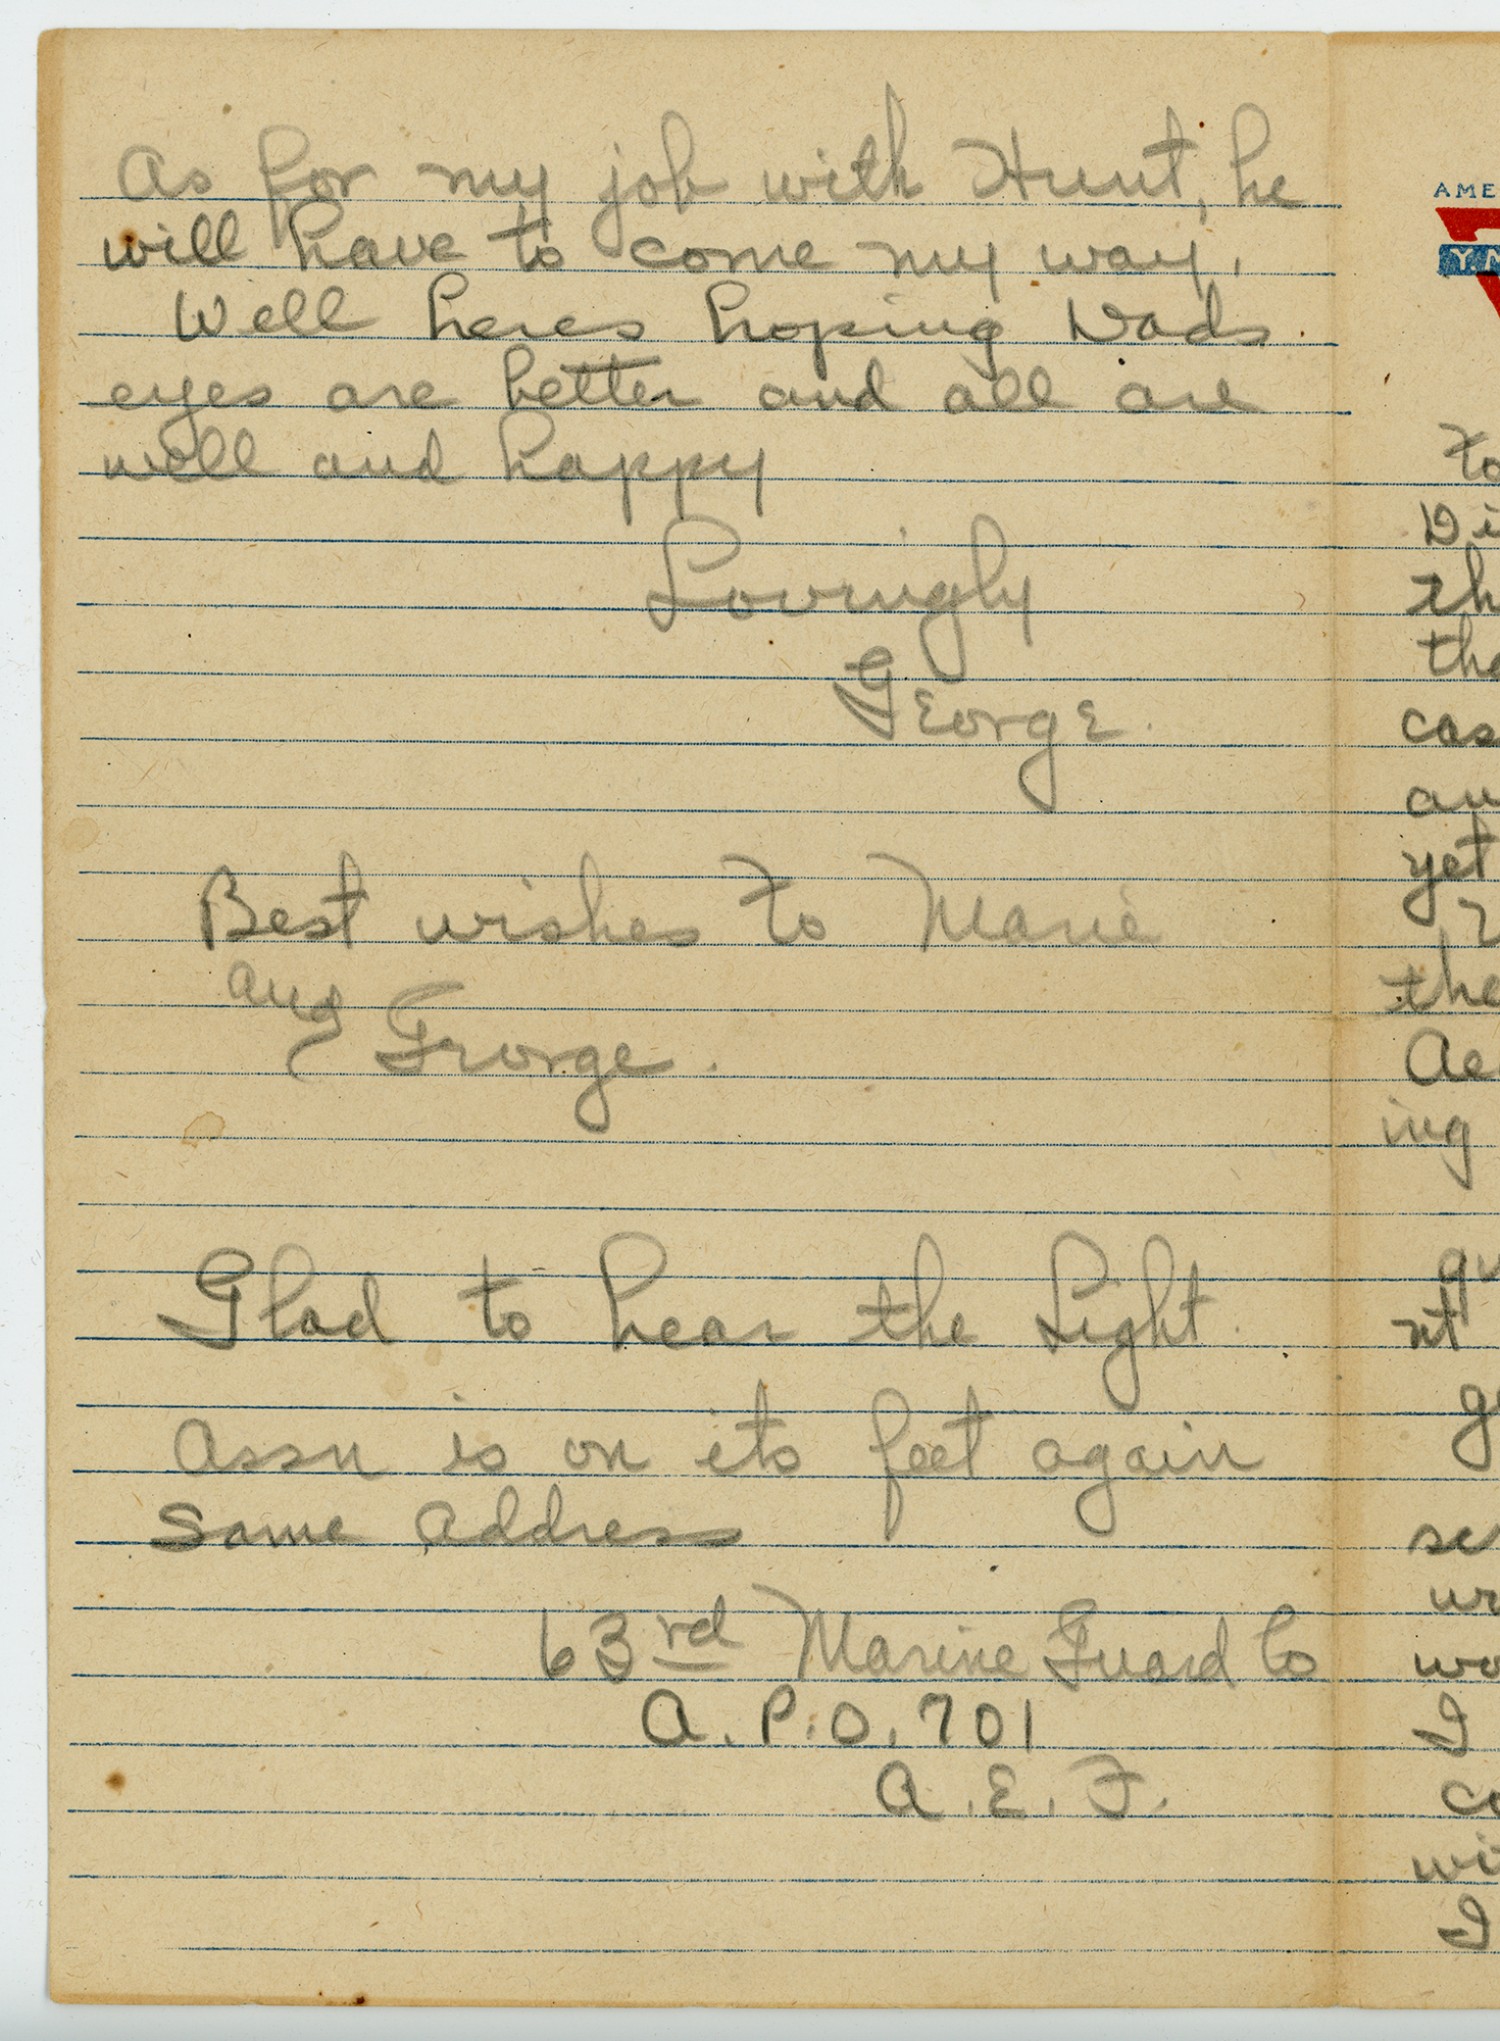 As for my job with Hunt, he
will have to come my way.
Well heres hoping Dads
eyes are better and all are
well and happy
Lovingly
George.
Best wishes to Marie
and George.
Glad to hear the Light
Assn is on its feet again
Same Address
63rd Marine Guard Co
A.P.O. 701
A.E.F.
AME
Y.M
to
Di
th
tha
cas
an
yet
the
Ae
ing
qu
nt
ge
se
wr
wo
I
co
wi
I